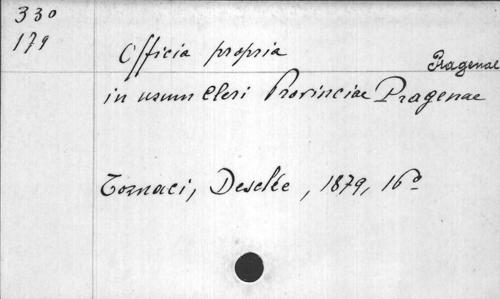 330
179
Officia propria
Pragenae
in usum Cleri Provinciae Pragenae
Tornaci, Desclée, 1879, 16°